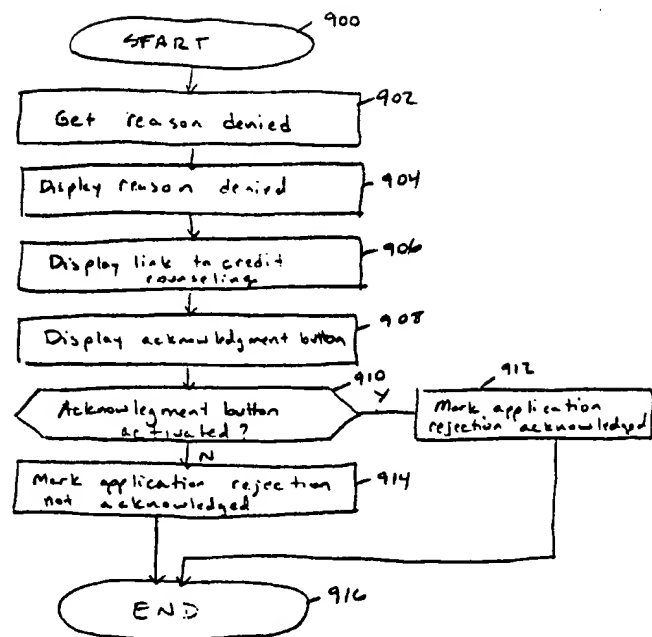 START
900
902
Get reason denied
Display reason denied
904
906
Display link to credit
counseling
908
Display acknowledgment button
910
Acknowlegment button
activated?
Y
912
Mark application
rejection acknowledged
N
Mark application rejection
not acknowledged
914
END
916